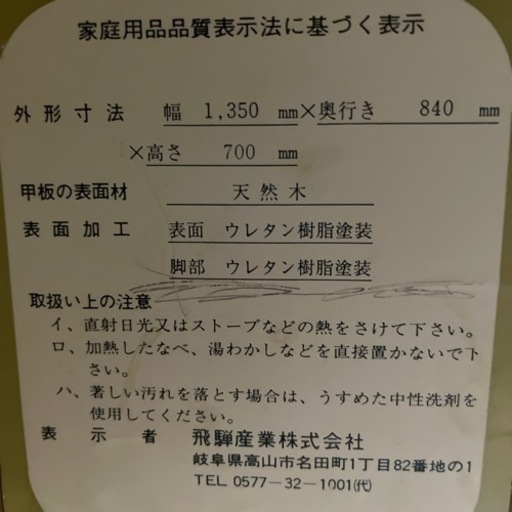 家庭用品品質表示法に基づく表示
外形寸法 幅 1,350 mm×奥行き 840 mm
×高さ 700 mm
甲板の表面材 天然木
表面加工 表面 ウレタン樹脂塗装
脚部 ウレタン樹脂塗装
取扱い上の注意
イ、直射日光又はストーブなどの熱をさけて下さい。
ロ、加熱したなべ、湯わかしなどを直接置かないで下
さい。
ハ、著しい汚れを落とす場合は、うすめた中性洗剤を
使用してください。
表示者 飛騨産業株式会社
岐阜県高山市名田町1丁目82番地の1
TEL 0577-32-1001(代)